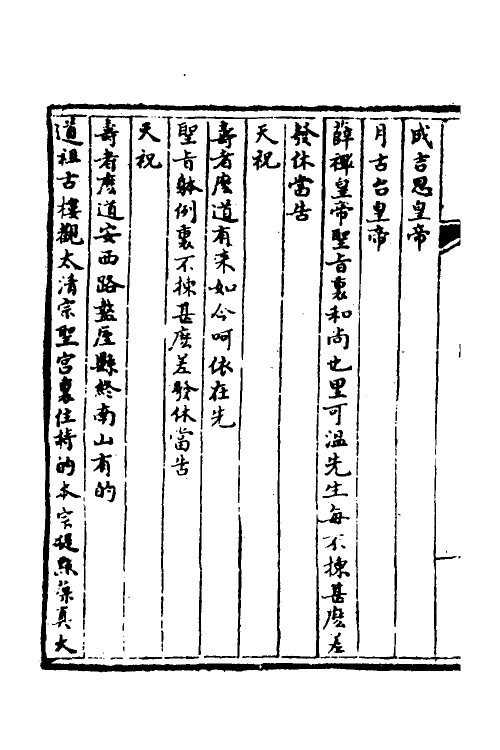 成吉思皇帝
月古台皇帝
薛禪皇帝聖旨裏和尚也里可溫先生每不揀甚麽差
發休當告
天祝
壽者麽道有來如今呵依在先
聖旨躰例裏不揀甚麽差發休當告
天祝
壽者麽道安西路盩厔縣終南山有的
道祖古樓觀太清宗聖宮裏住持的本宗提點葆真大